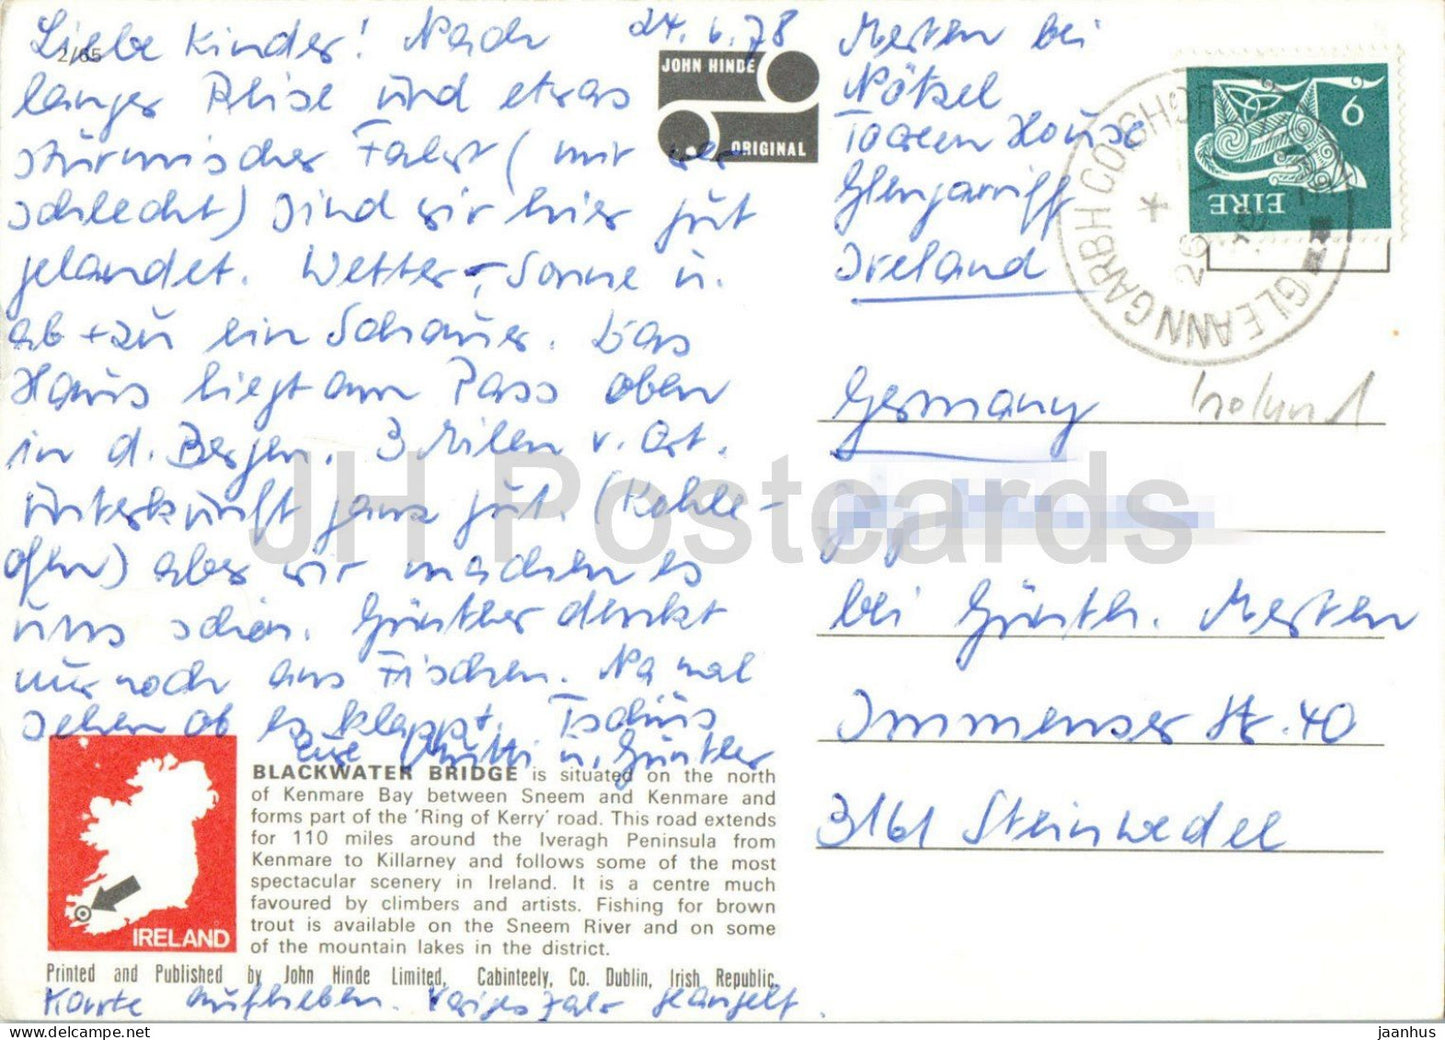 2/65
Liebe Kinder! Nach
24.6.78
langer Reise und etwas
stürmischer Fahrt (mir war
schlecht) sind wir hier gut
gelandet. Wetter - Sonne u.
ab + zu ein Schauer. Das
Haus liegt am Pass oben
in d. Bergen. 3 Meilen v. Ort.
Unterkunft ganz gut. (Kohle-
ofen) aber wir machen es
uns schön. Günther denkt
nur noch ans Fischen. Na mal
sehen ob es klappt. Tschüs
Eure Mutti u. Günther
JOHN HINDE
ORIGINAL
Merten bei
Nötzel
House
Glengarriff
Ireland
EIRE
9
GLEANN GARBH CO CHORCAÍ
26
Germany
Irland
bei Günth. Merten
Immenser Str. 40
3161 Steinwedel
JH Postcards
IRELAND
BLACKWATER BRIDGE is situated on the north
of Kenmare Bay between Sneem and Kenmare and
forms part of the 'Ring of Kerry' road. This road extends
for 110 miles around the Iveragh Peninsula from
Kenmare to Killarney and follows some of the most
spectacular scenery in Ireland. It is a centre much
favoured by climbers and artists. Fishing for brown
trout is available on the Sneem River and on some
of the mountain lakes in the district.
Printed and Published by John Hinde Limited, Cabinteely, Co. Dublin, Irish Republic.
Karte aufheben. Voriges Jahr geangelt.
jaanhus